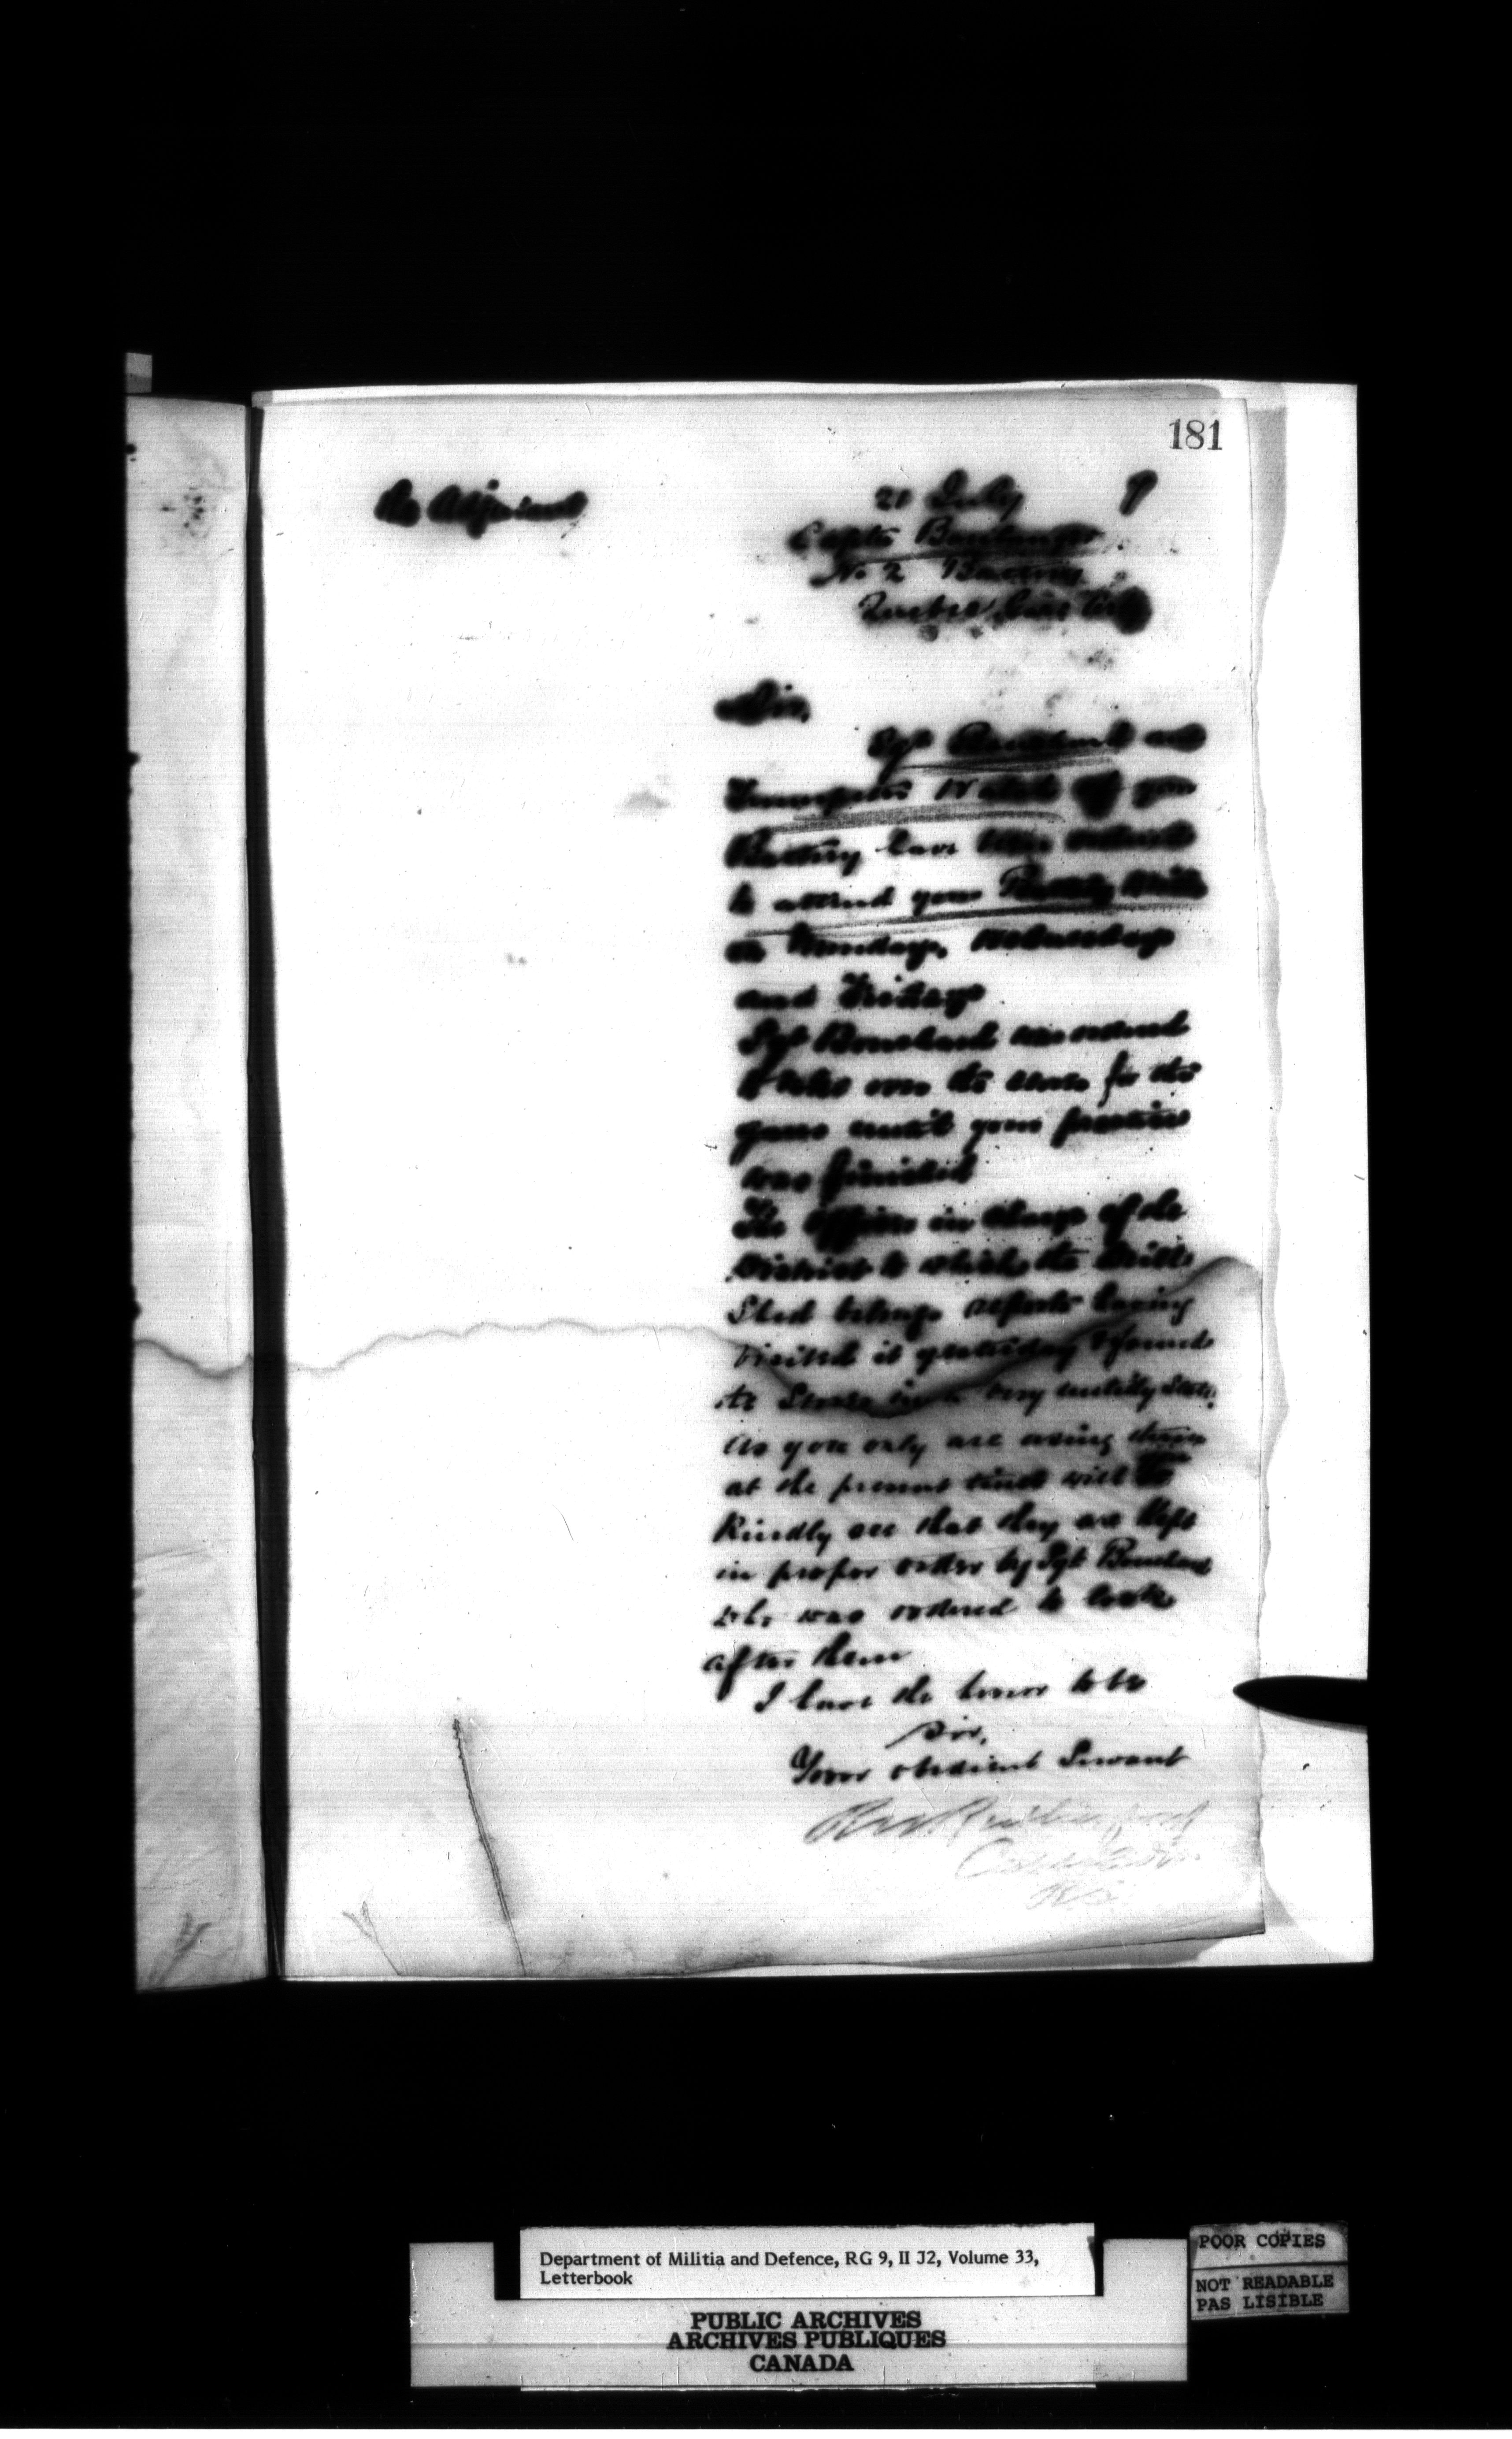 181
The Adjutant
21 July 9
Capt Boulanger
No 2 Battery
Quebec
Sir,
Sgt and
Trumpeter Walsh of your
Battery have been ordered
to attend your Battery drills
on Mondays, Wednesdays
and Fridays
Sgt Bouchard was ordered
to take over the stores for the
guns until your practice
was finished
The Officer in charge of the
District to which the drill
Shed belongs reports having
visited it yesterday & found
the Stores in a very untidy State.
As you only are using
at the present time will
Kindly see that they are kept
in proper order by Sgt Bouchard
who was ordered to look
after them
I have the honor to be
Sir,
Your obedient Servant
Department of Militia and Defence, RG 9, II J2, Volume 33,
Letterbook
PUBLIC ARCHIVES
ARCHIVES PUBLIQUES
CANADA
POOR COPIES
NOT READABLE
PAS LISIBLE